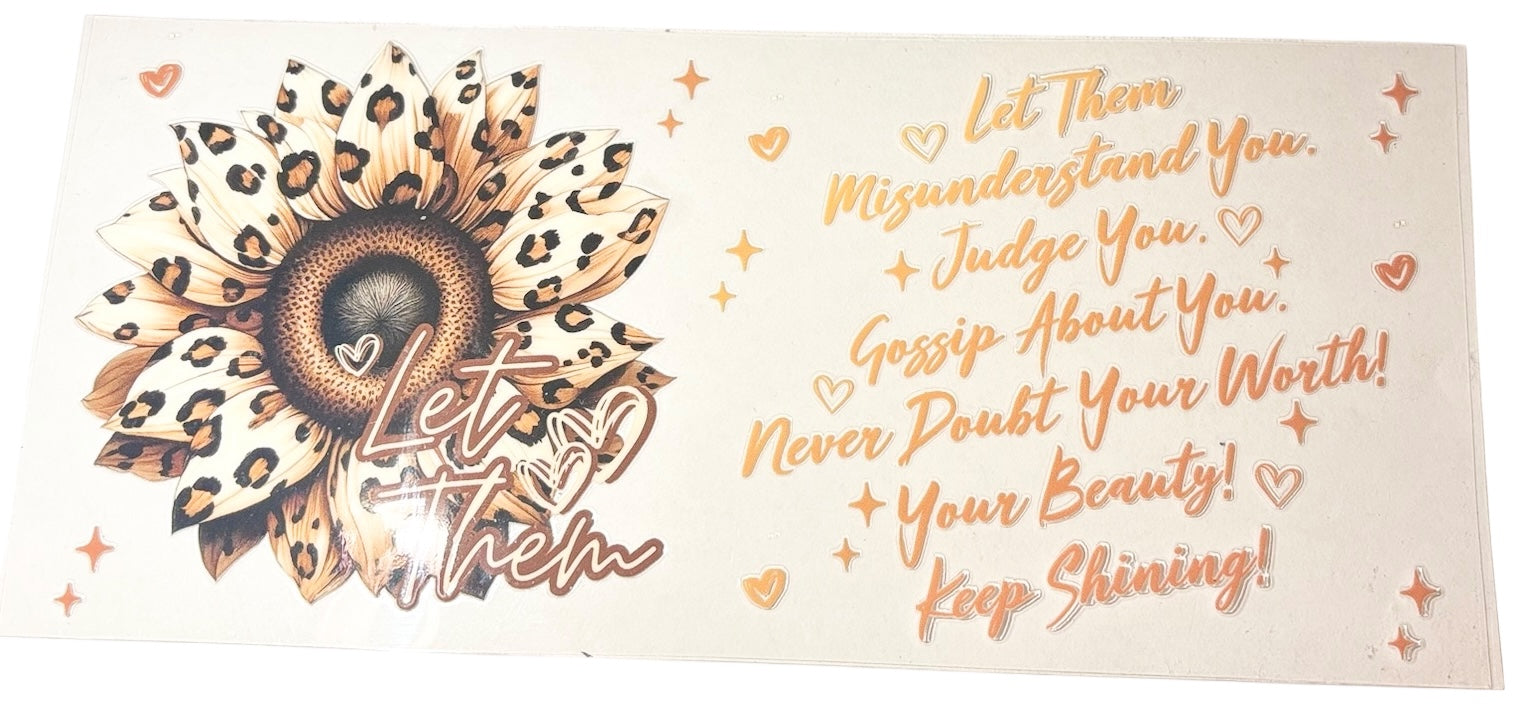 Let
Them
Let Them
Misunderstand You.
Judge You.
Gossip About You.
Never Doubt Your Worth!
Your Beauty!
Keep Shining!